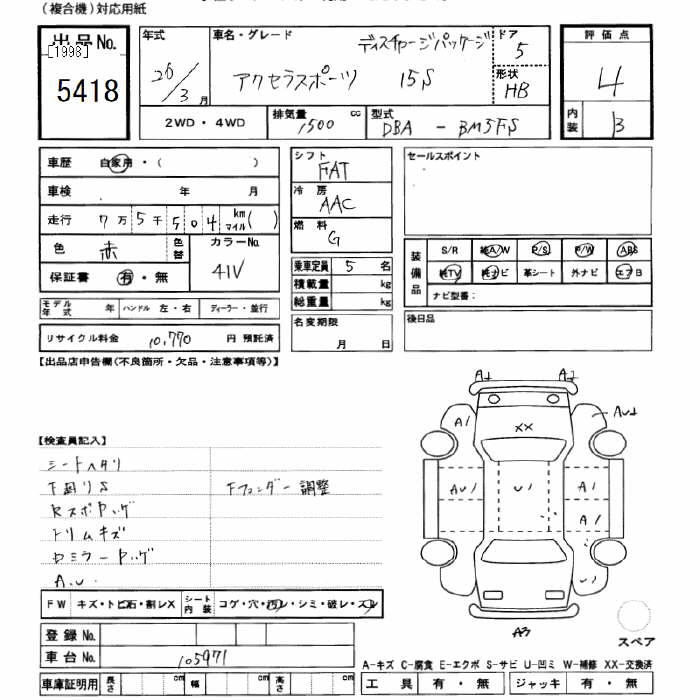 (複合機)対応用紙
出品No.
[1998]
5418
年式
26/3月
車名・グレード
ディスチャージパッケージ
アクセラスポーツ 15S
ドア
5
形状
HB
2WD・4WD
排気量
1500 cc
型式
DBA - BM5FS
評価点
4
内装
B
車歴 自家用・( )
車検 年 月
走行 7万5千504 km マイル( )
色 赤 色替
カラーNo.
41V
保証書 有・無
モデル年式 年 ハンドル 左・右 ディーラー・並行
リサイクル料金 10,770 円 預託済
シフト
FAT
冷房
AAC
燃料
G
乗車定員 5 名
積載量 kg
総重量 kg
名変期限
月 日
セールスポイント
装備品
S/R 純A/W P/S P/W ABS
純TV 純ナビ 革シート 外ナビ エアB
ナビ型番:
後日品
【出品店申告欄(不良箇所・欠品・注意事項等)】
【検査員記入】
シートヘタリ
下廻りS
Fフェンダー調整
Rスポヤッグ
トリムキズ
ロミラーヤッグ
A.U.
FW キズ・トビ石・割レX
シート内装 コゲ・穴・汚レ・シミ・破レ・スレ
登録No.
車台No. 105971
車庫証明用 長さ cm 幅 cm 高さ cm
A1 A1
A1
AU1
XX
AU1
U1
A1
A1
U1
A3
スペア
A-キズ C-腐食 E-エクボ S-サビ U-凹ミ W-補修 XX-交換済
工具 有・無 ジャッキ 有・無